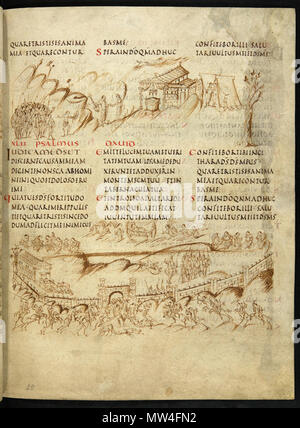 QUARETRISTISESANIMA
MEAETQUARECONTUR
BASME;
SPERAINDOQMADHUC
CONFITEBORILLISALU
TARIUULTUSMEIETDSMS
XLII PSALMUS DAUID
IUDICAMEDSET
DISCERNECAUSAMMEAM
DEGENTENONSCAABHOMI
NEINIQUOETDOLOSOERU
EME
QUIATUESDSFORTITUDO
MEAQUAREMEREPPULIS
TIETQUARETRISTISINCEDO
DUMADFLIGITMEINIMICUS
EMITTELUCEMTUAMETUERI
TATEMTUAMIPSAMEDEDU
XERUNTETADDUXERIN
MONTEMSCMTUUMETIN
TABERNACULATUA
ETINTROIBOADALTAREDI
ADDMQUILAETIFICAT
IUUENTUTEMMEAM
CONFITEBORTIBIIN
CITHARADSDSMEUS
QUARETRISTISESANIMA
MEAETQUARECONTUR
BASME
SPERAINDOQMADHUC
CONFITEBORILLISALU
TARIUULTUSMEIETDSMS